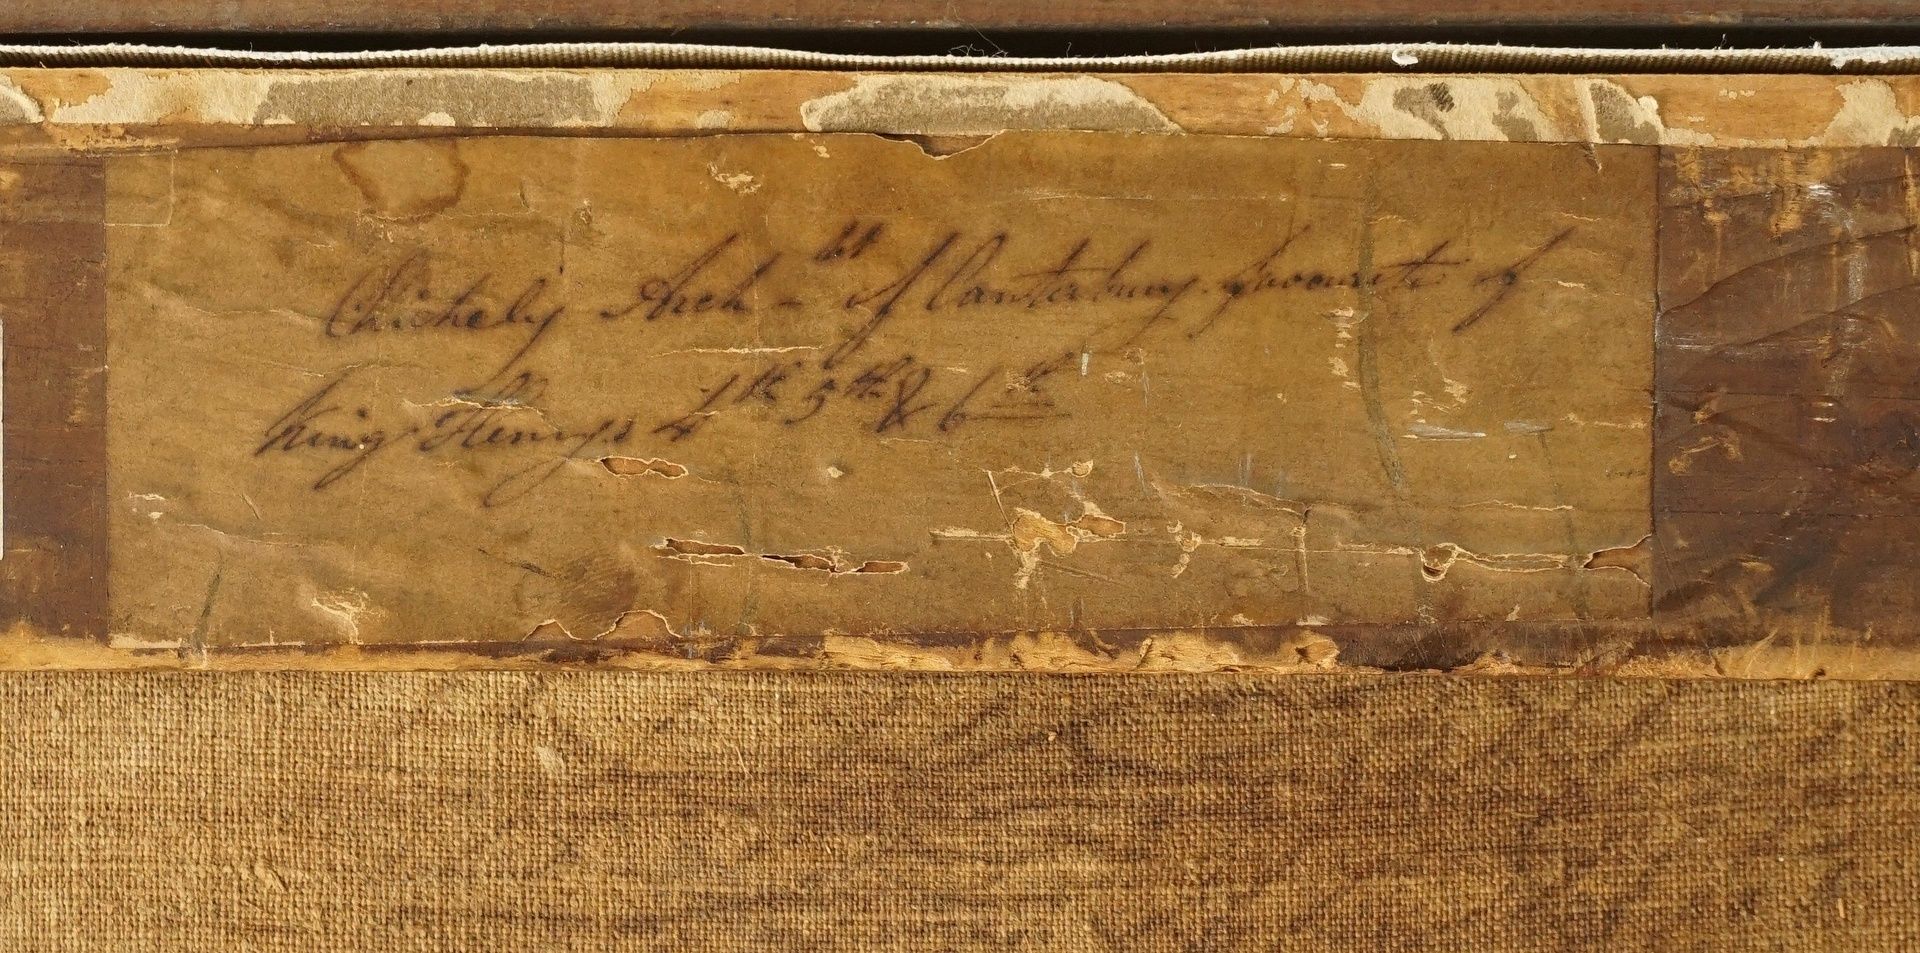 Chichely Arch-bt of Canterbury favourite of
King Henrys 4th 5th & 6th